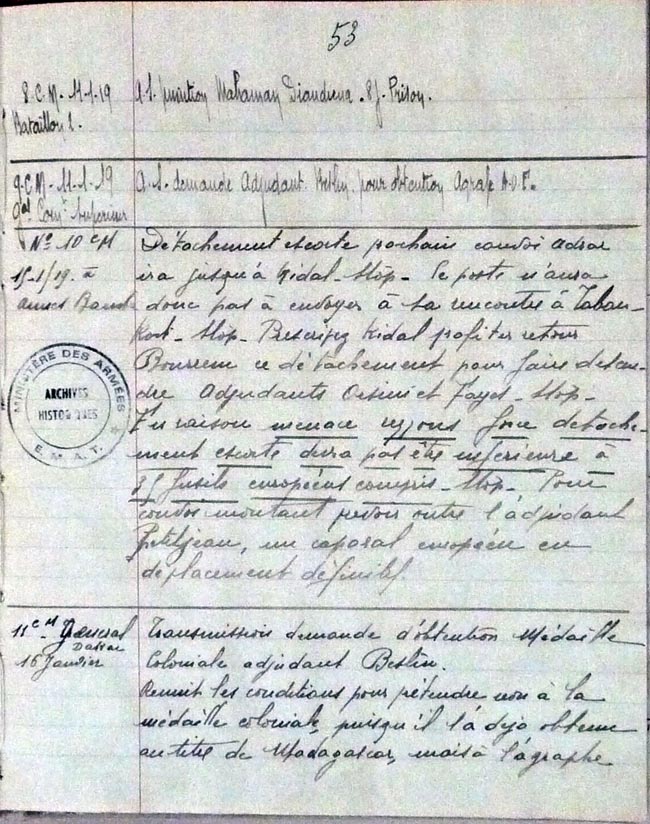 53
8. C.M. 11-1-19 A.S. punition Mahaman 8 j. Prison.
Bataillon 2.
9. C.M. 11-1-19 A.S. demande Adjudant Beslin pour obtention Agrafe A.O.F.
Gal Comt Supérieur
No 10 CM Détachement escorte prochain convoi Adrar
15-1/19. à ira jusqu'à Kidal - Stop - Ce poste n'aura
donc pas à envoyer à sa rencontre à Taban-
Kort - Stop - Prescrivez Kidal profiter retour
Bourrem ce détachement pour faire descen-
dre Adjudants Orsini et - Stop -
En raison menace force détache-
ment escorte devra pas être inférieure à
35 fusils européens compris - Stop - Pour
convoi montant prévoir outre l'adjudant
Petitjean, un caporal européen en
déplacement définitif.
MINISTÈRE DES ARMÉES
ARCHIVES
HISTORIQUES
E.M.A.T.
11 CM Général Transmission demande d'obtention Médaille
Dakar
16 Janvier Coloniale adjudant Beslin.
Réunit les conditions pour prétendre non à la
médaille coloniale, puisqu'il l'a déjà obtenue
au titre de Madagascar, mais à l'agraphe